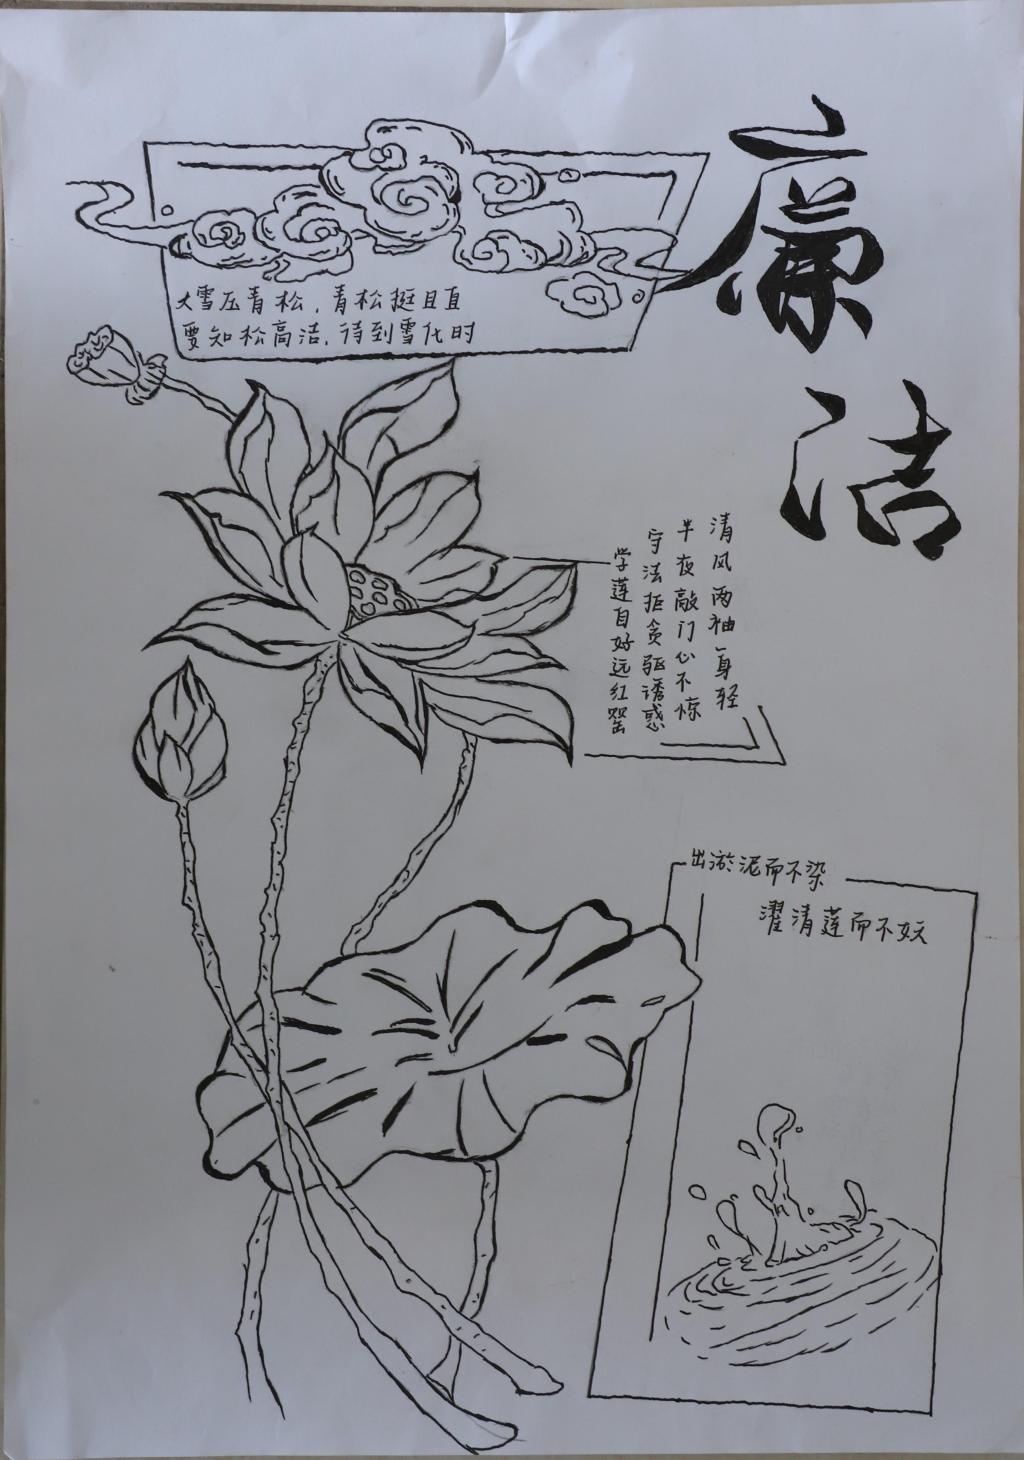 廉洁
大雪压青松，青松挺且直
要知松高洁，待到雪化时
清风两袖一身轻
半夜敲门心不惊
守法拒贪驱诱惑
学莲自好远红
出淤泥而不染
濯清莲而不妖